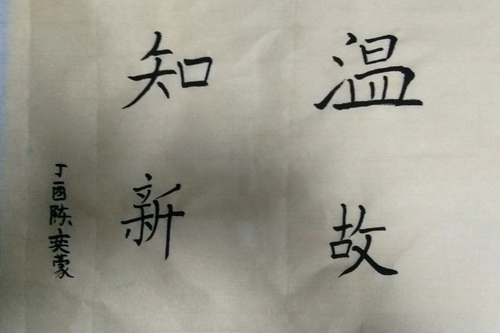 温故
知新
丁酉陈奕蒙